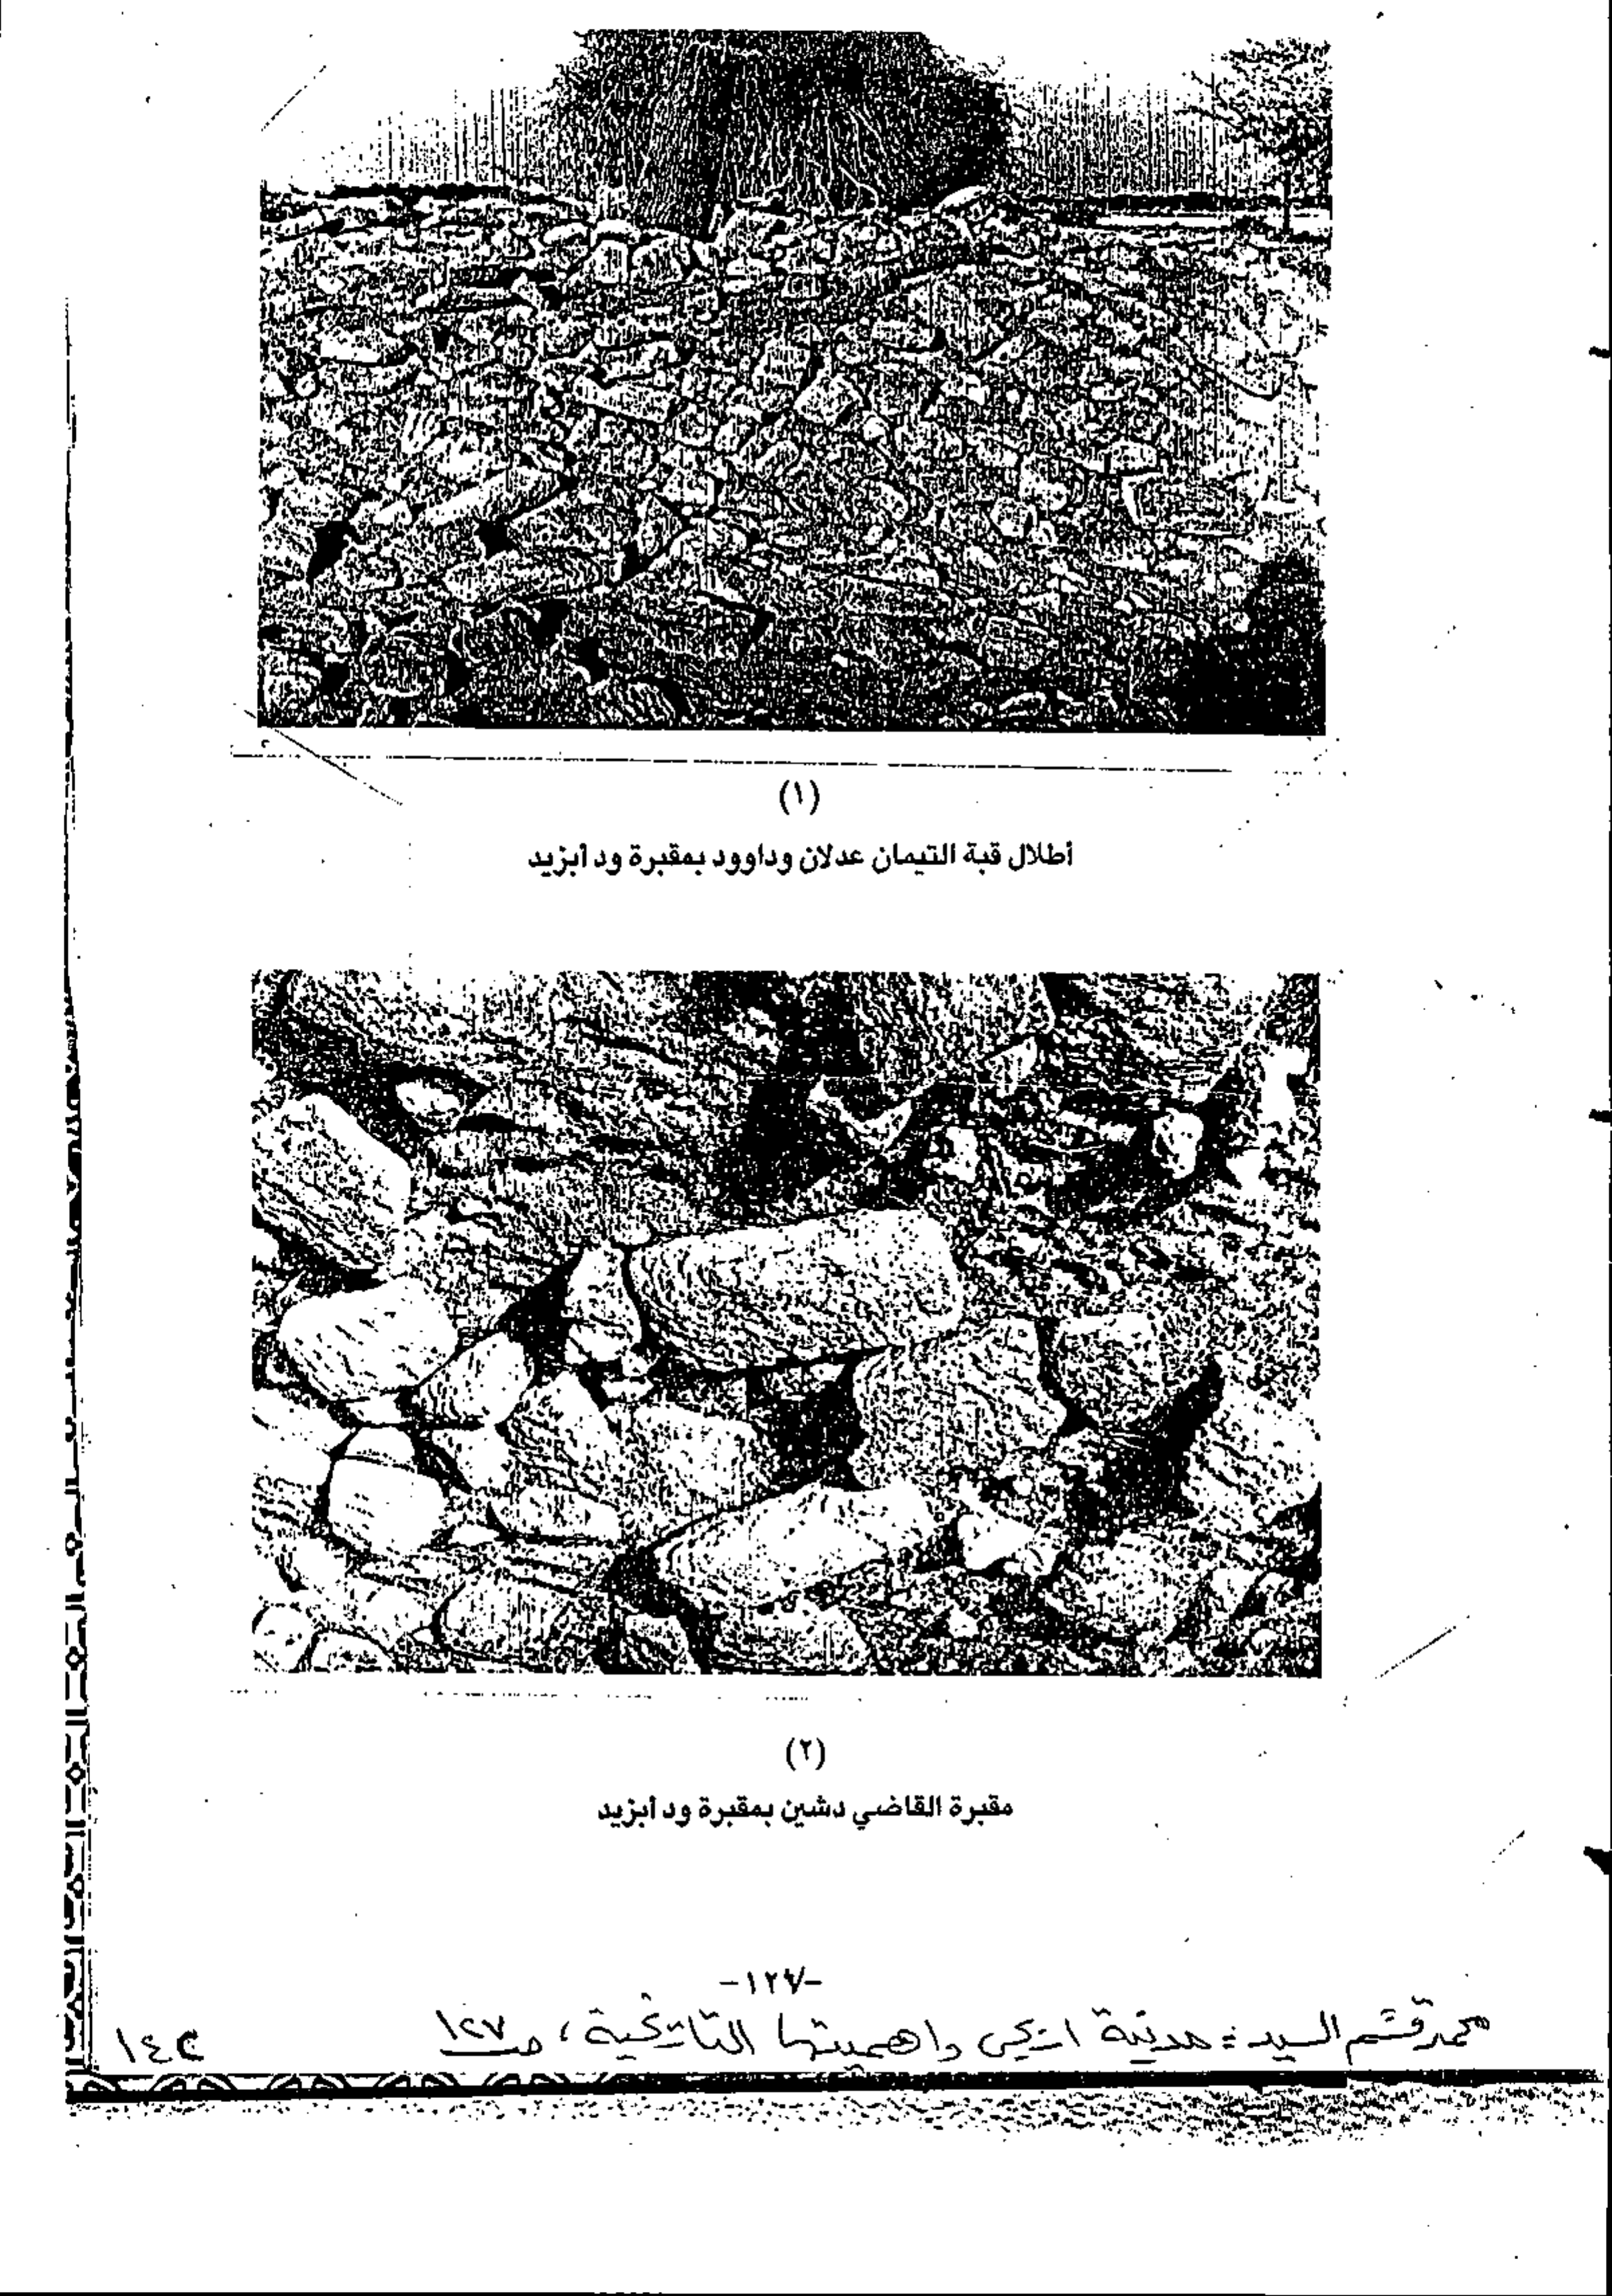 (١)
أطلال قبة التيمان عدلان وداوود بمقبرة ود أبزيد
(٢)
مقبرة القاضي دشين بمقبرة ود أبزيد
-١٢٧-
محمد قسم السيد : مدينة اربجي واهميتها التاريخية ، ص ١٢٧
١٤٢